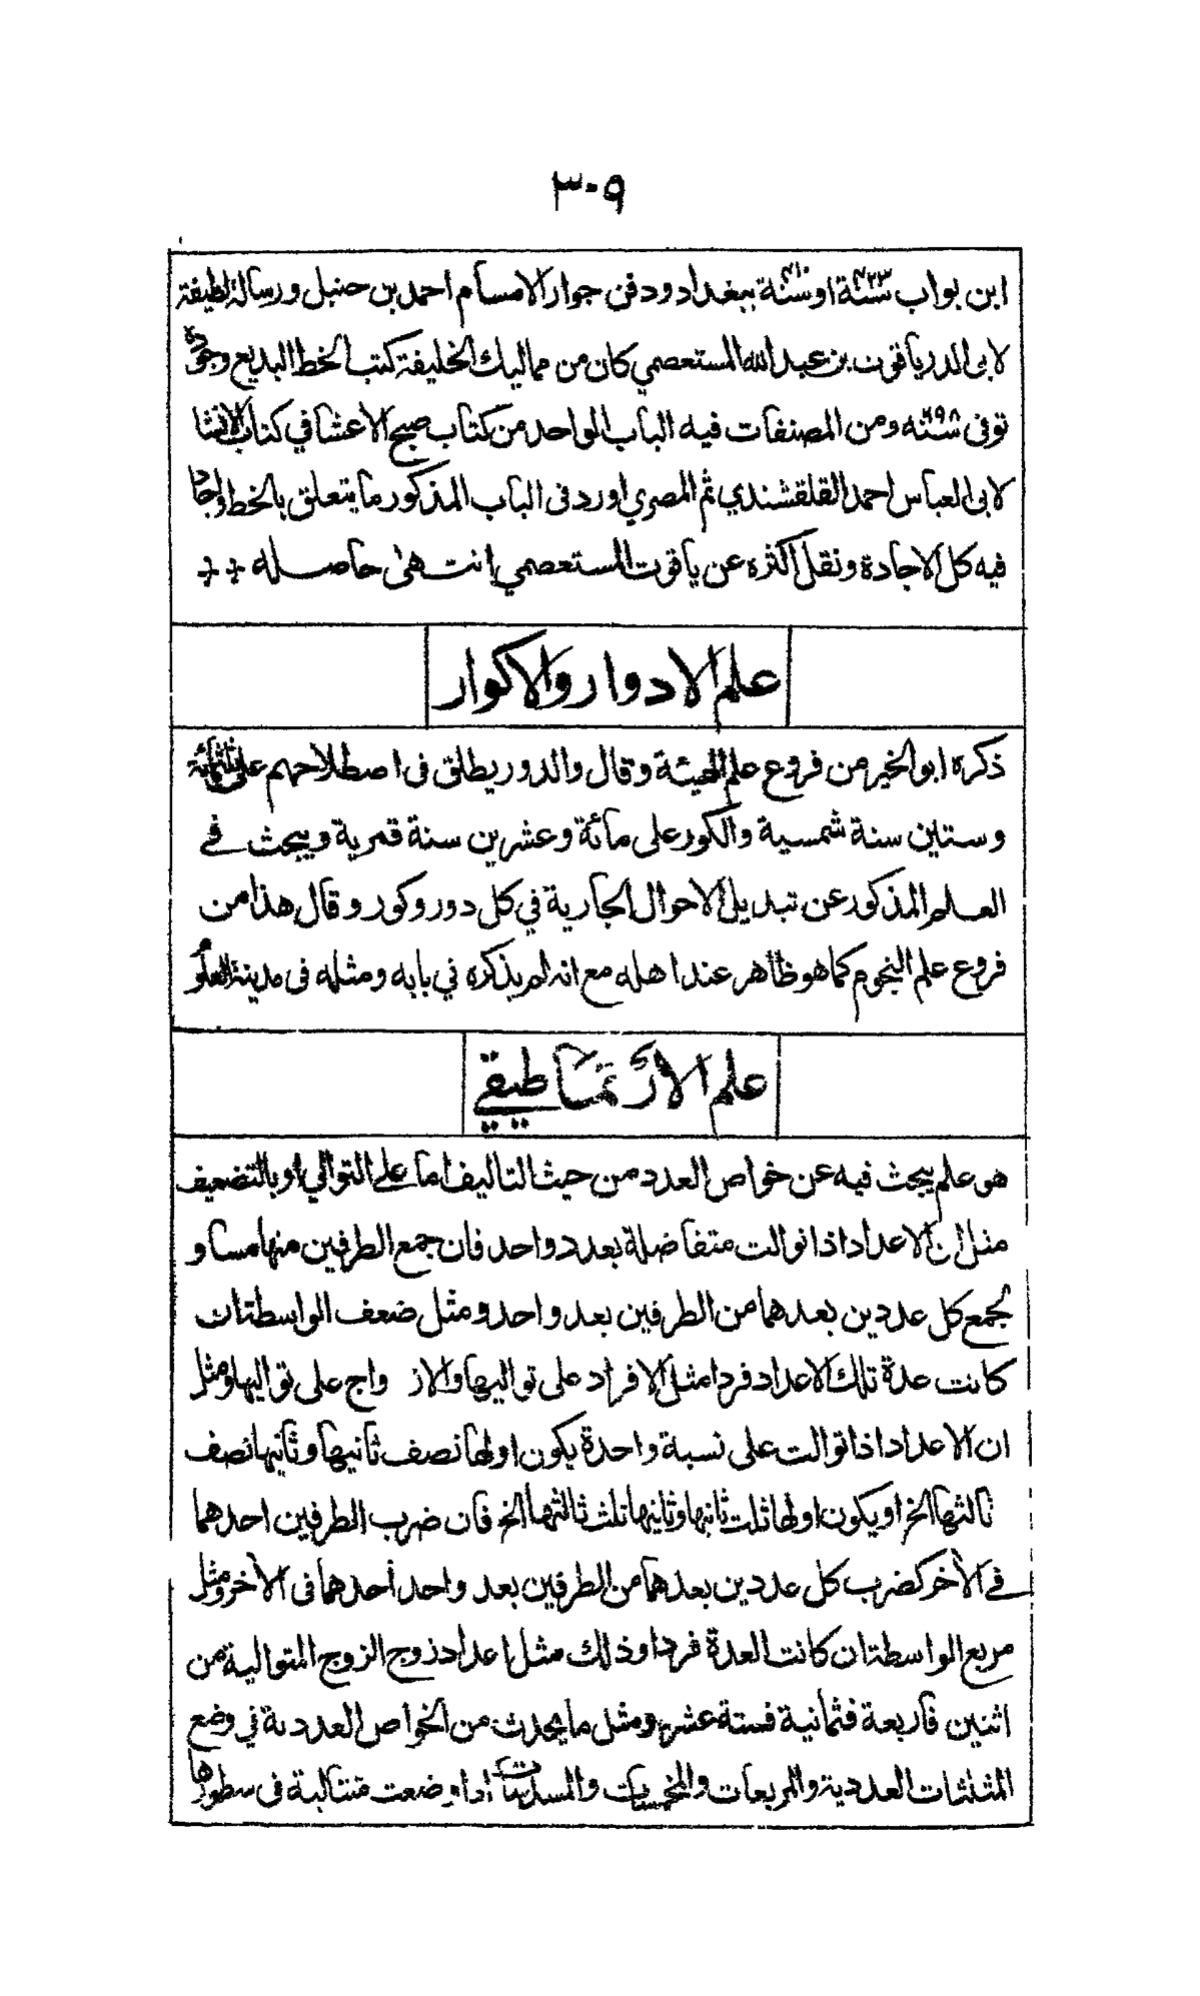 ٣٠٩
ابن بواب سنة ٤٢٣ او سنة ٤١٠ ببغداد ودفن جوار الامام احمد بن حنبل ورسالة لطيفة
لابى الدر ياقوت بن عبد الله المستعصمي كان من مماليك الخليفة كتب الخط البديع وجوده
توفى سنة ٦٩٨ ومن المصنفات فيه الباب الواحد من كتاب صبح الاعشا في كتاب الانشا
لابى العباس احمد القلقشندي ثم المصري اورد فى الباب المذكور ما يتعلق بالخط واجاد
فيه كل الاجادة ونقل اكثره عن ياقوت المستعصمي انتهى حاصله
علم الادوار والاكوار
ذكره ابو الخير من فروع علم الهيئة وقال والدور يطلق فى اصطلاحهم على ثلثمائة
وستين سنة شمسية والكور على مائة وعشرين سنة قمرية ويبحث في
العلم المذكور عن تبديل الاحوال الجارية في كل دور وكور وقال هذا من
فروع علم النجوم كما هو ظاهر عند اهله مع انه لم يذكره في بابه ومثله فى مدينة العلوم
علم الأرتماطيقي
هو علم يبحث فيه عن خواص العدد من حيث التاليف اما على التوالي او بالتضعيف
مثل ان الاعداد اذا توالت متفاضلة بعدد واحد فان جمع الطرفين منها مساو
لجمع كل عددين بعدهما من الطرفين بعد واحد ومثل ضعف الواسطة ان
كانت عدة تلك الاعداد فردا مثل الافراد على تواليها والازواج على تواليها ومثل
ان الاعداد اذا توالت على نسبة واحدة يكون اولها نصف ثانيها وثانيها نصف
ثالثها الخ او يكون اولها ثلث ثانيها وثانيها ثلث ثالثها الخ فان ضرب الطرفين احدهما
في الأخر كضرب كل عددين بعدهما من الطرفين بعد واحد أحدهما فى الأخر ومثل
مربع الواسطة ان كانت العدة فردا وذلك مثل اعداد زوج الزوج المتوالية من
اثنين فاربعة فثمانية فستة عشر ومثل ما يحدث من الخواص العددية في وضع
المثلثات العددية والمربعات والمخمسات والمسدسات اذا وضعت متتالية فى سطورها